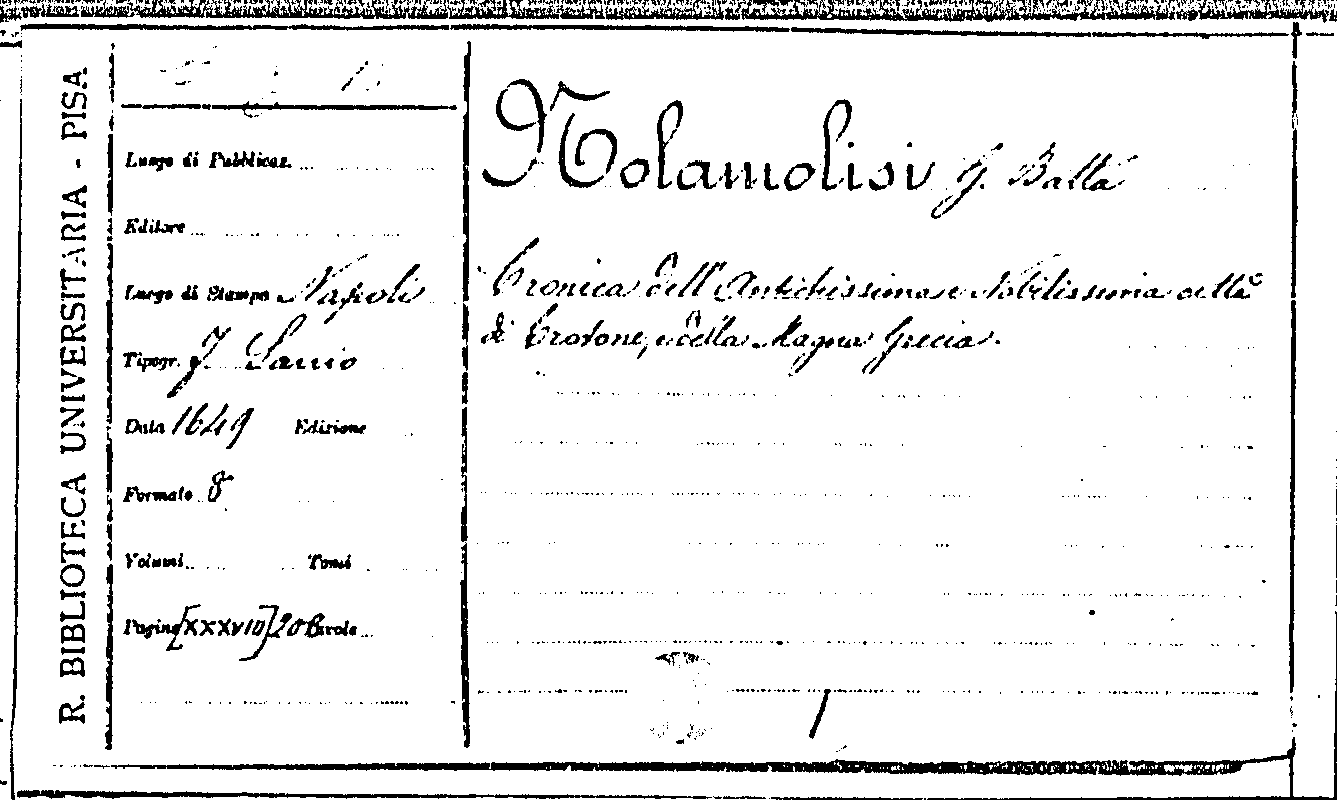 R. BIBLIOTECA UNIVERSITARIA - PISA
Luogo di Pubblicaz.
Editore
Luogo di Stampa Napoli
Tipogr. F. Savio
Data 1649 Edizione
Formato 8
Volumi Tomi
Pagine [XXXVIII] 206 Tavole
Nolamolisi G. Batta
Cronica dell'Antichissima e Nobilissima città
di Crotone, e della Magna Grecia.